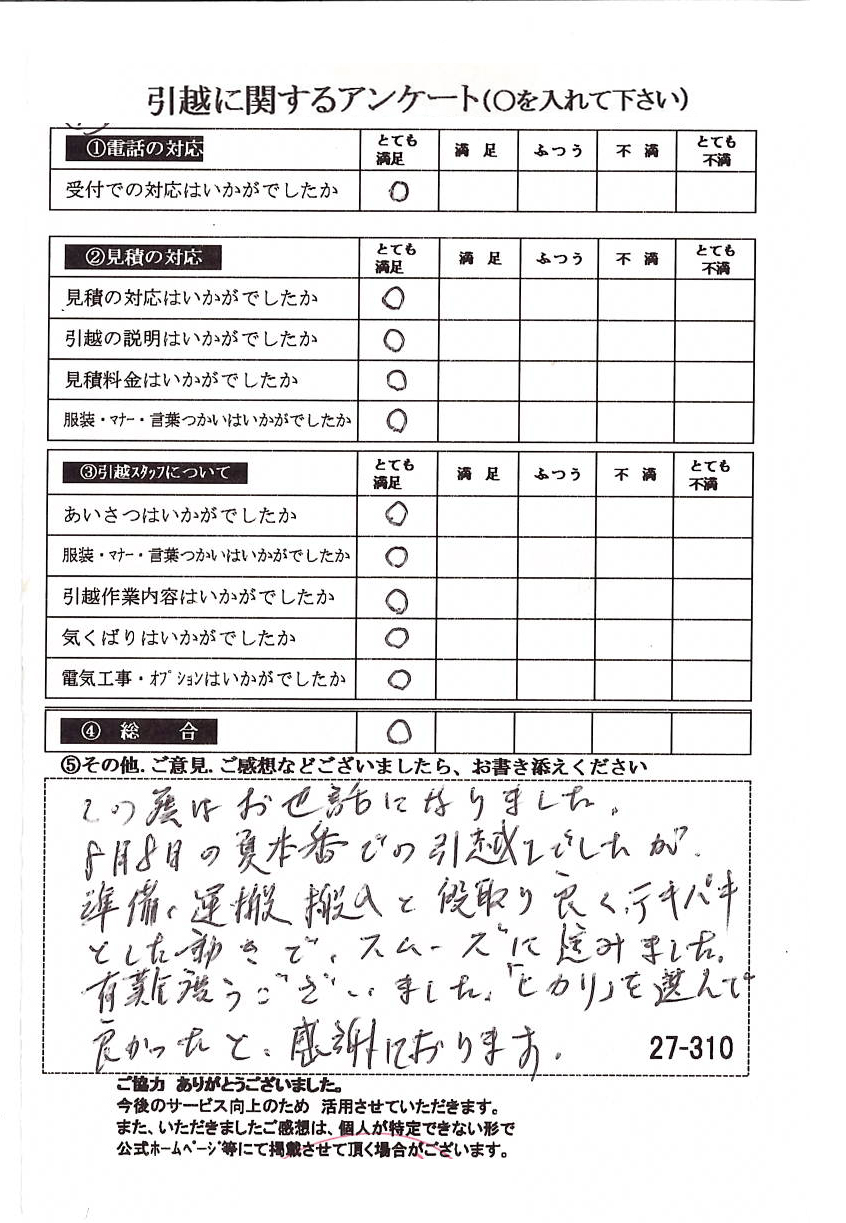 引越に関するアンケート(○を入れて下さい)
①電話の対応 とても満足 満足 ふつう 不満 とても不満
受付での対応はいかがでしたか ○
②見積の対応 とても満足 満足 ふつう 不満 とても不満
見積の対応はいかがでしたか ○
引越の説明はいかがでしたか ○
見積料金はいかがでしたか ○
服装・マナー・言葉つかいはいかがでしたか ○
③引越スタッフについて とても満足 満足 ふつう 不満 とても不満
あいさつはいかがでしたか ○
服装・マナー・言葉つかいはいかがでしたか ○
引越作業内容はいかがでしたか ○
気くばりはいかがでしたか ○
電気工事・オプションはいかがでしたか ○
④総合 ○
⑤その他.ご意見.ご感想などございましたら、お書き添えください
この度はお世話になりました。
8月8日の夏本番での引越でしたが、
準備、運搬、搬入と段取り良く、テキパキ
とした動きで、スムーズに進みました。
有難度うございました。「ヒカリ」を選んで
良かったと、感謝しております。
27-310
ご協力 ありがとうございました。
今後のサービス向上のため 活用させていただきます。
また、いただきましたご感想は、個人が特定できない形で
公式ホームページ等にて掲載させて頂く場合がございます。